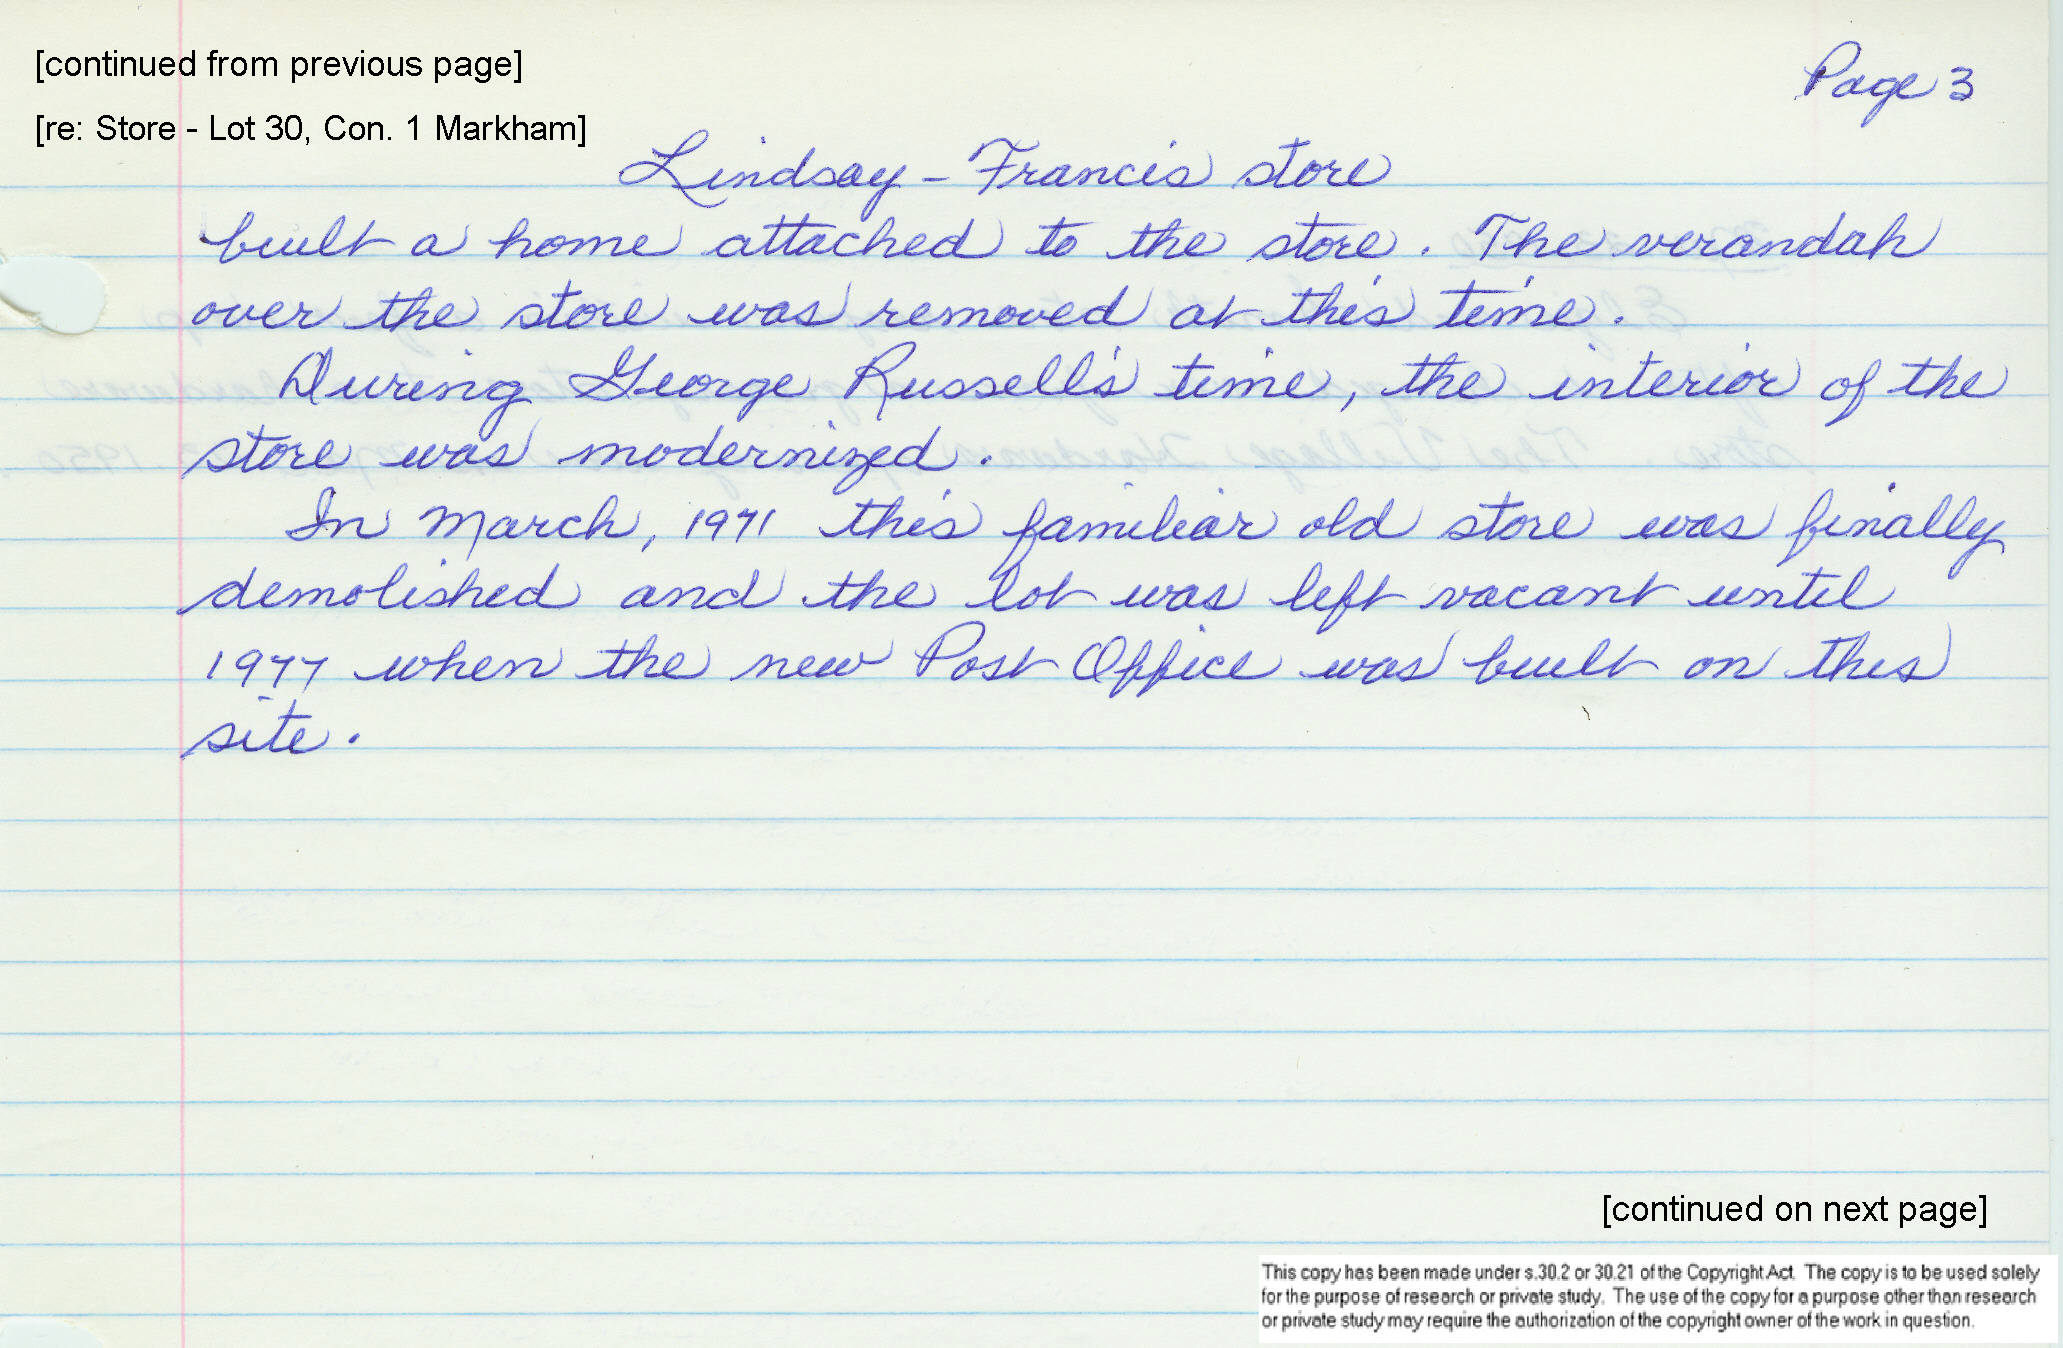 [continued from previous page]
Page 3
[re: Store - Lot 30, Con. 1 Markham]
Lindsay - Francis store
built a home attached to the store. The verandah
over the store was removed at this time.
During George Russell's time, the interior of the
store was modernized.
In March, 1971 this familiar old store was finally
demolished and the lot was left vacant until
1977 when the new Post Office was built on this
site.
[continued on next page]
This copy has been made under s.30.2 or 30.21 of the Copyright Act. The copy is to be used solely
for the purpose of research or private study. The use of the copy for a purpose other than research
or private study may require the authorization of the copyright owner of the work in question.